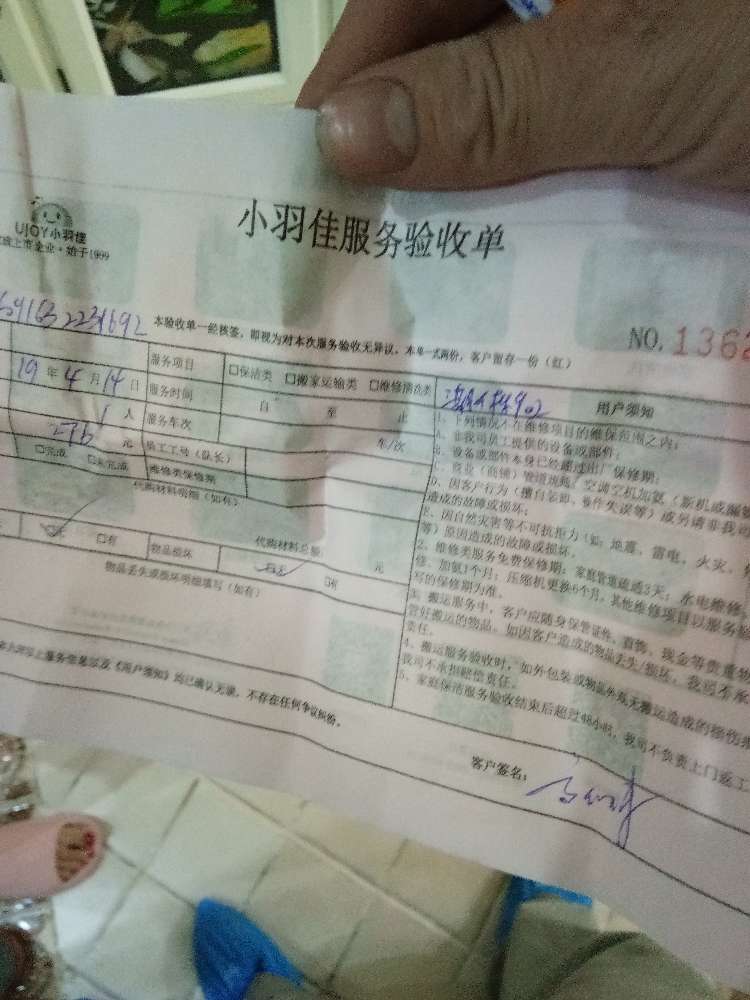 小羽佳服务验收单
UJOY小羽佳
上市企业·始于1999
本验收单一经核签，即视为对本次服务验收无异议。本单一式两份，客户留存一份（红）
NO. 1362
服务项目 □保洁类 □搬家运输类 □维修清洗类
用户须知
19 年 4 月 14 日 服务时间 自 至 止
1 人 服务车次 车/次
元 员工工号（队长）
□完成 □未完成 维修类保修期
代购材料明细（如有）
代购材料总额： 元
□有 物品损坏 □有
物品丢失或损坏明细填写（如有）
以上服务信息以及《用户须知》均已确认无误，不存在任何争议纠纷。
1、下列情况不在维修项目的维保范围之内：
A、非我司员工提供的设备或部件；
B、设备或部件本身已经超过出厂保修期；
C、商业（商铺）管道疏通，空调空机加氨（新机或漏氨
D、因客户行为（擅自装卸、操作失误等）或另请非我司
造成的故障或损坏；
E、因自然灾害等不可抗拒力（如：地震、雷电、火灾、
等）原因造成的故障或损坏。
2、维修类服务免费保修期：家庭管道疏通3天；水电维修
修、加氨1个月；压缩机更换6个月，其他维修项目以服务验
写的保修期为准。
3、搬运服务中，客户应随身保管证件、首饰、现金等贵重物
管好搬运的物品。如因客户造成的物品丢失/损坏，我司不承
责任。
4、搬运服务验收时，如外包装或物品外观无搬运造成的损伤
我司不承担赔偿责任。
5、家庭保洁服务验收结束后超过48小时，我司不负责上门返工
客户签名：